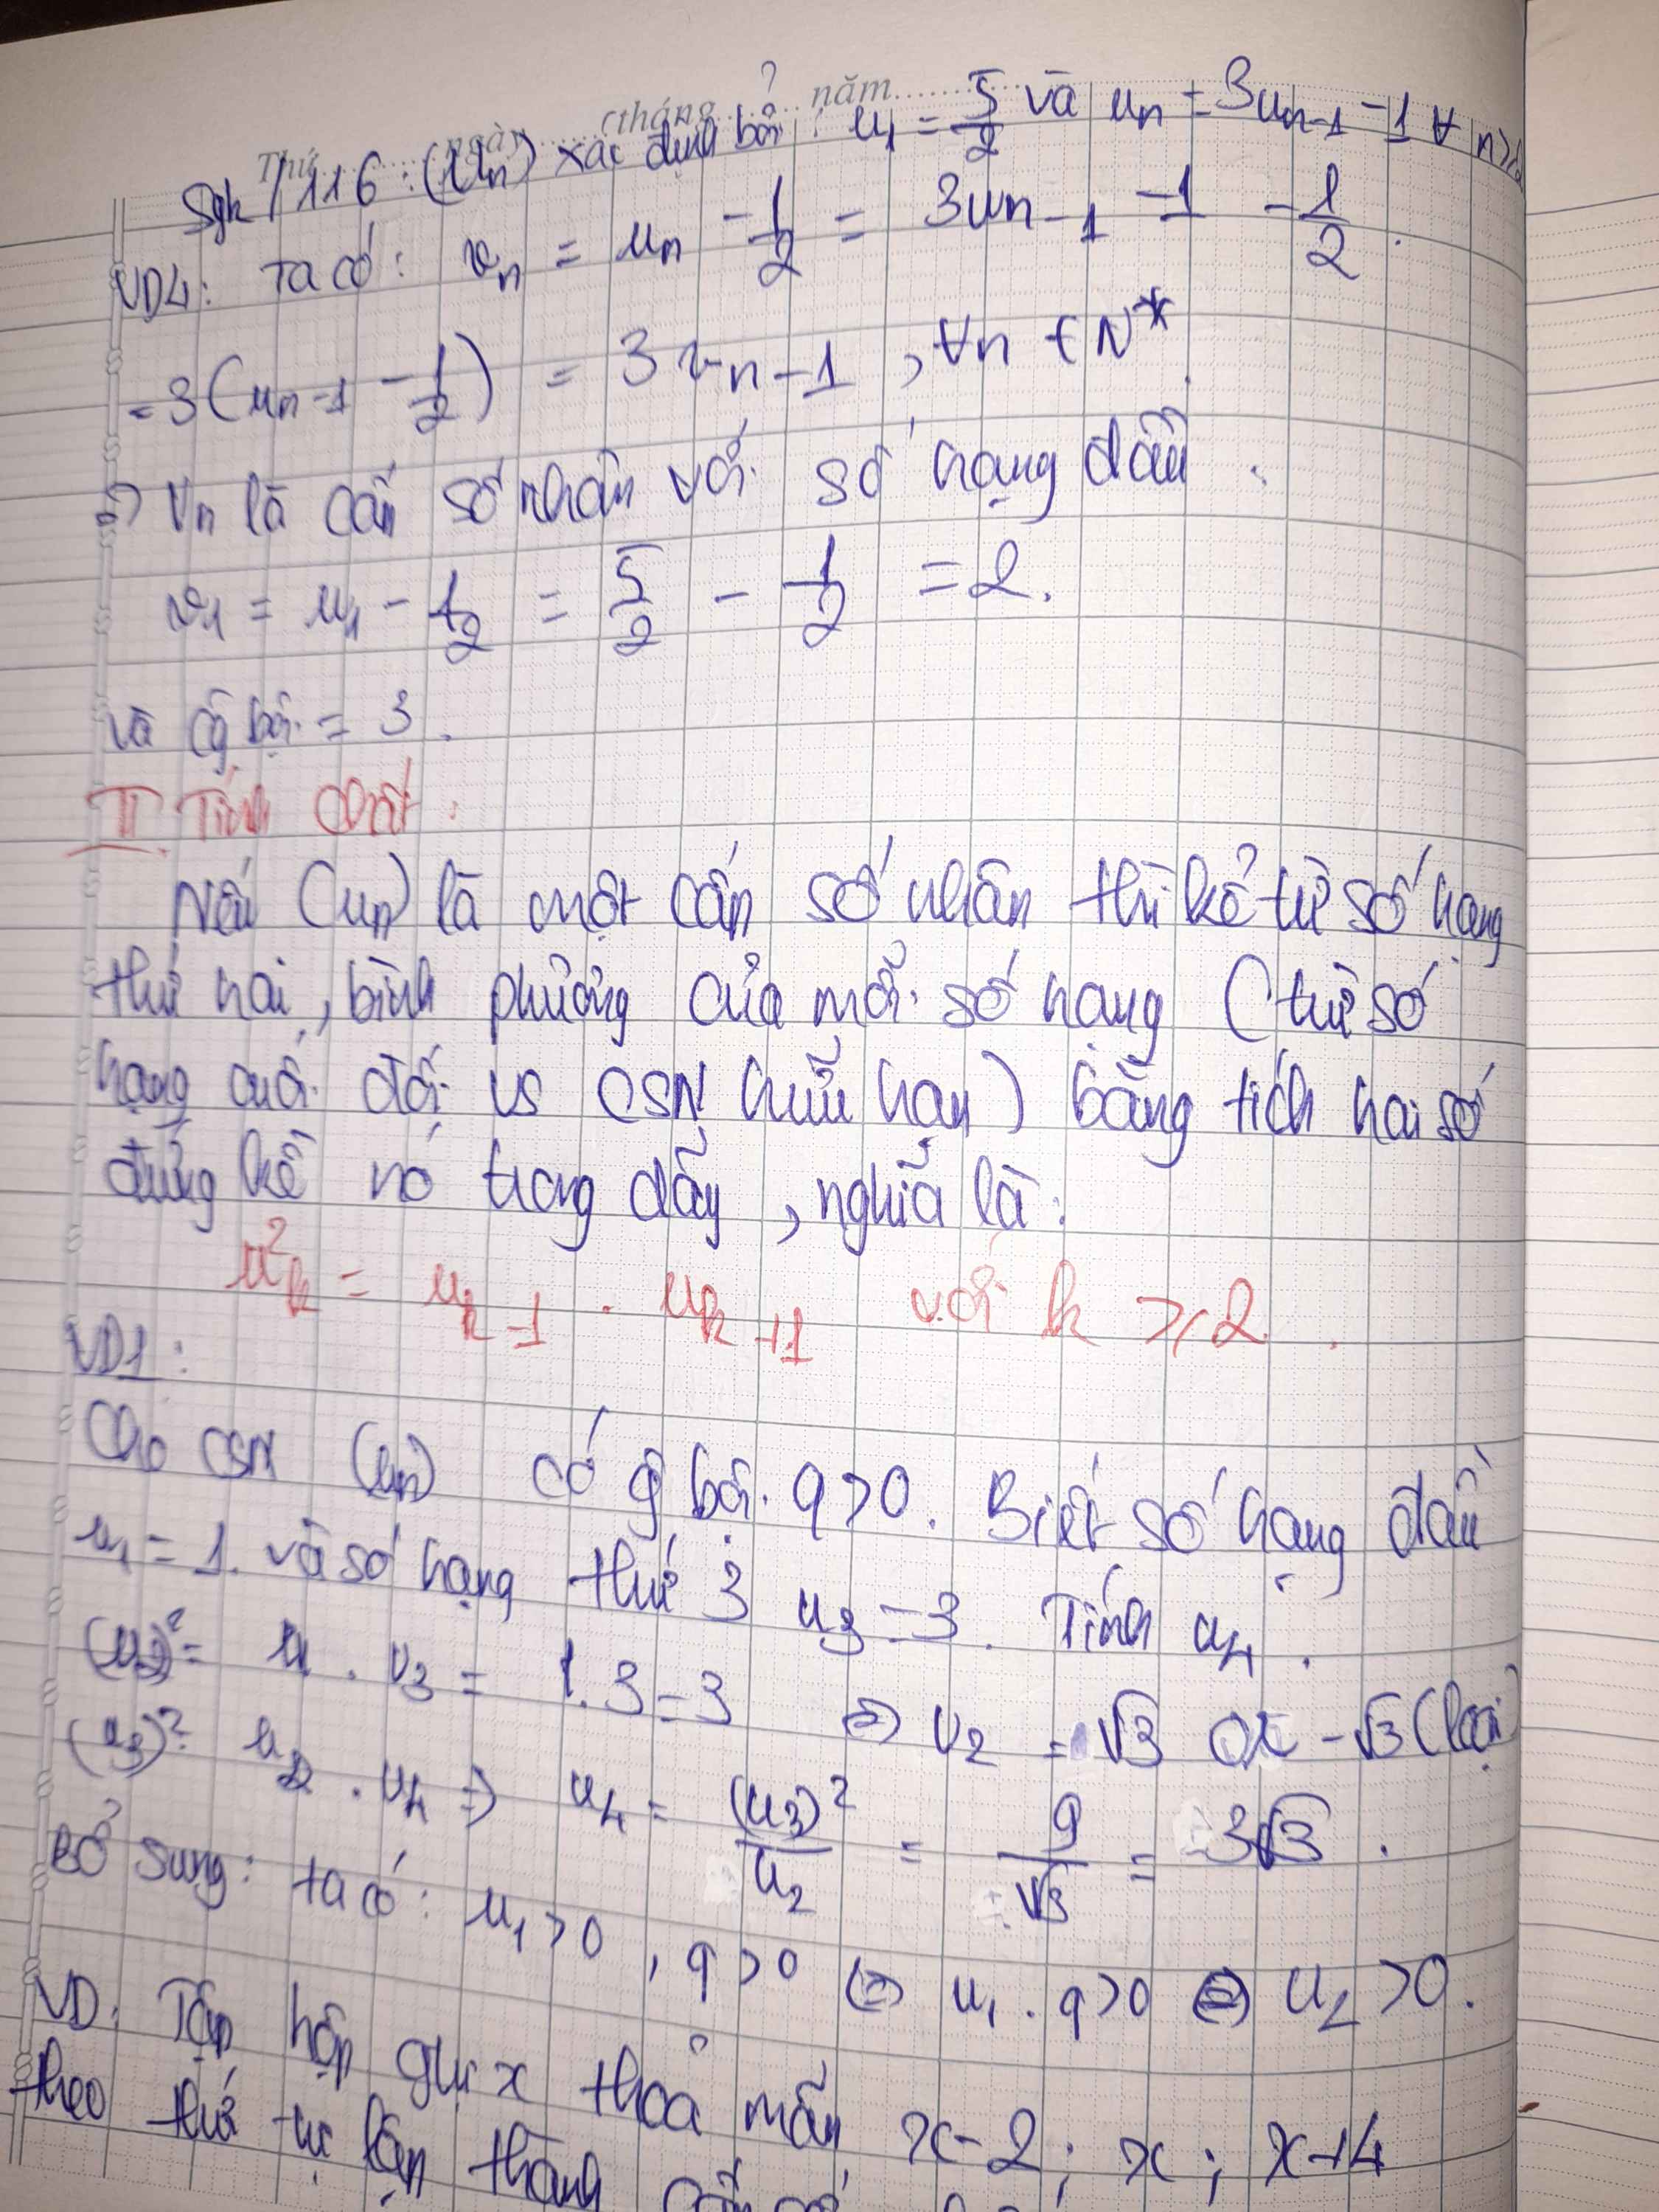 Thứ ngày tháng năm
Sgk/116: (Un) xác định bởi: u₁ = 5/2 và uₙ = 3uₙ₋₁ - 1 ∀ n ≥ 2
VD4: Ta có: vₙ = uₙ - 1/2 = 3uₙ₋₁ - 1 - 1/2.
= 3(uₙ₋₁ - 1/2) = 3vₙ₋₁, ∀n ∈ N*
=> Vn là cấp số nhân với số hạng đầu.
v₁ = u₁ - 1/2 = 5/2 - 1/2 = 2.
và cg bội = 3.
II. Tính chất:
Nếu (un) là một cấp số nhân thì kể từ số hạng
thứ hai, bình phương của mỗi số hạng (trừ số
hạng cuối đối vs CSN hữu hạn) bằng tích hai số
đứng kề nó trong dãy, nghĩa là:
u²ₖ = uₖ₋₁ . uₖ₊₁ với k ≥ 2.
VD1:
Cho CSN (un) có g bội q>0. Biết số hạng đầu
u₁ = 1. và số hạng thứ 3 u₃ = 3. Tính u₄.
(u₂)² = u . u₃ = 1.3 = 3 => u₂ = √3 or -√3 (loại)
(u₃)² = u₂ . u₄ => u₄ = (u₃)²/u₂ = 9/√3 = 3√3.
Bổ sung: ta có: u₁>0, q>0 <=> u₁.q>0 <=> u₂>0.
VD: Tập hợp gtrị x thoả mãn x-2; x; x+4
theo thứ tự lập thành cấp số